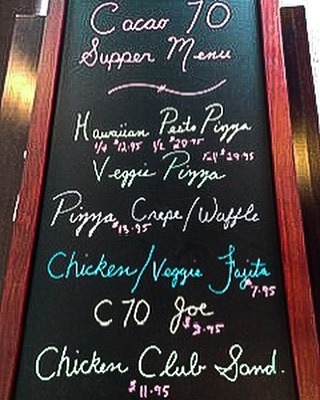 Cacao 70
Supper Menu
Hawaiian Pesto Pizza
1/4 $12.95 1/2 $20.95 full $29.95
Veggie Pizza
Pizza Crepe/Waffle
$13.95
Chicken/Veggie Fajita
$7.95
C70 Joe
Chicken Club Sand.
$11.95